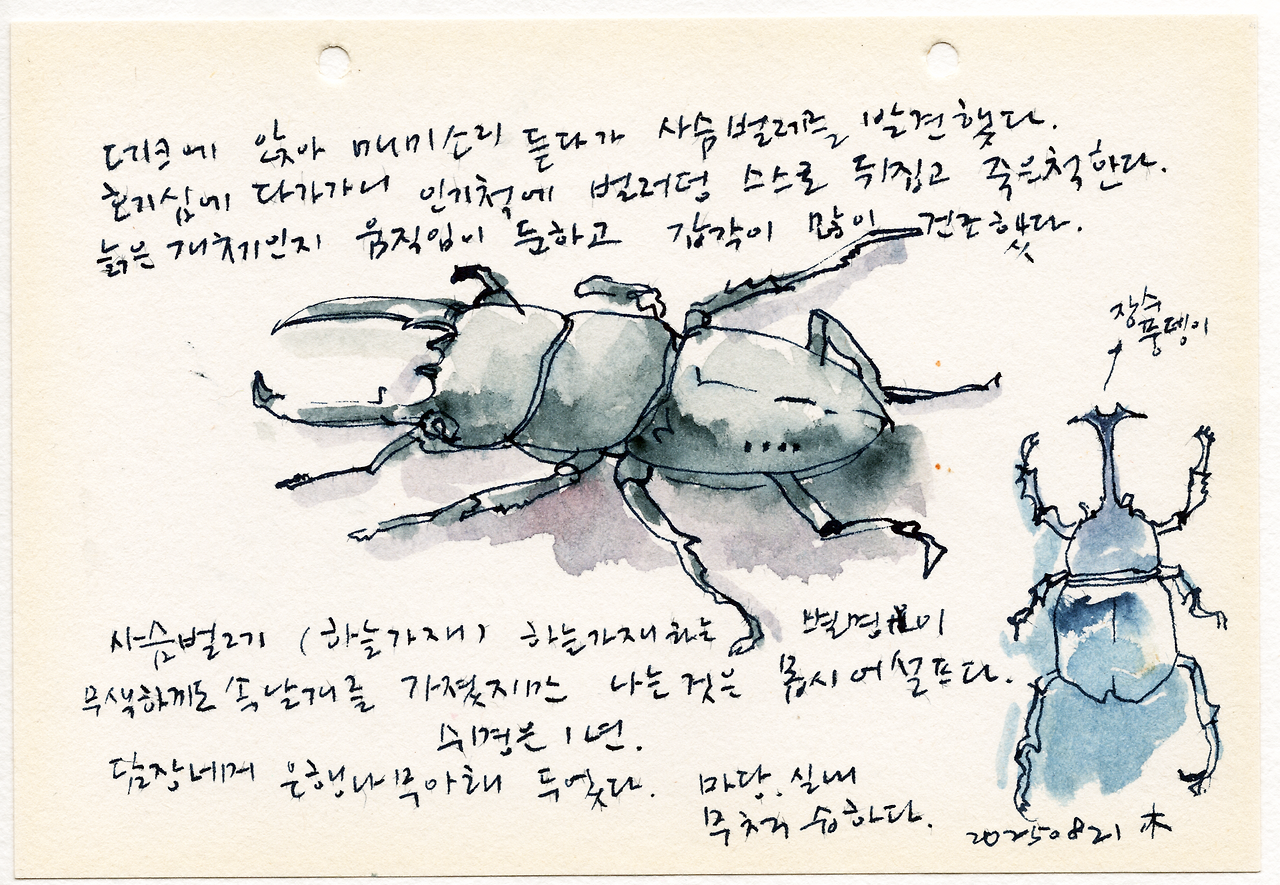 데크에 앉아 매미소리 듣다가 사슴벌레를 발견했다.
호기심에 다가가니 인기척에 벌러덩 스스로 뒤집고 죽은척한다.
늙은 개체인지 움직임이 둔하고 감각이 많이 건조했다.
장수
풍뎅이
사슴벌레기 (하늘가재) 하늘가재라는 별명이
무색하게도 속날개를 가졌지만 나는 것은 몹시 어설프다.
수명은 1년.
담장네게 은행나무아래 두었다. 마당. 실내
무척 습하다.
20250821 木